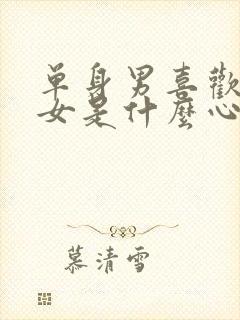 单身男喜歡
女是什麼心
慕清雪